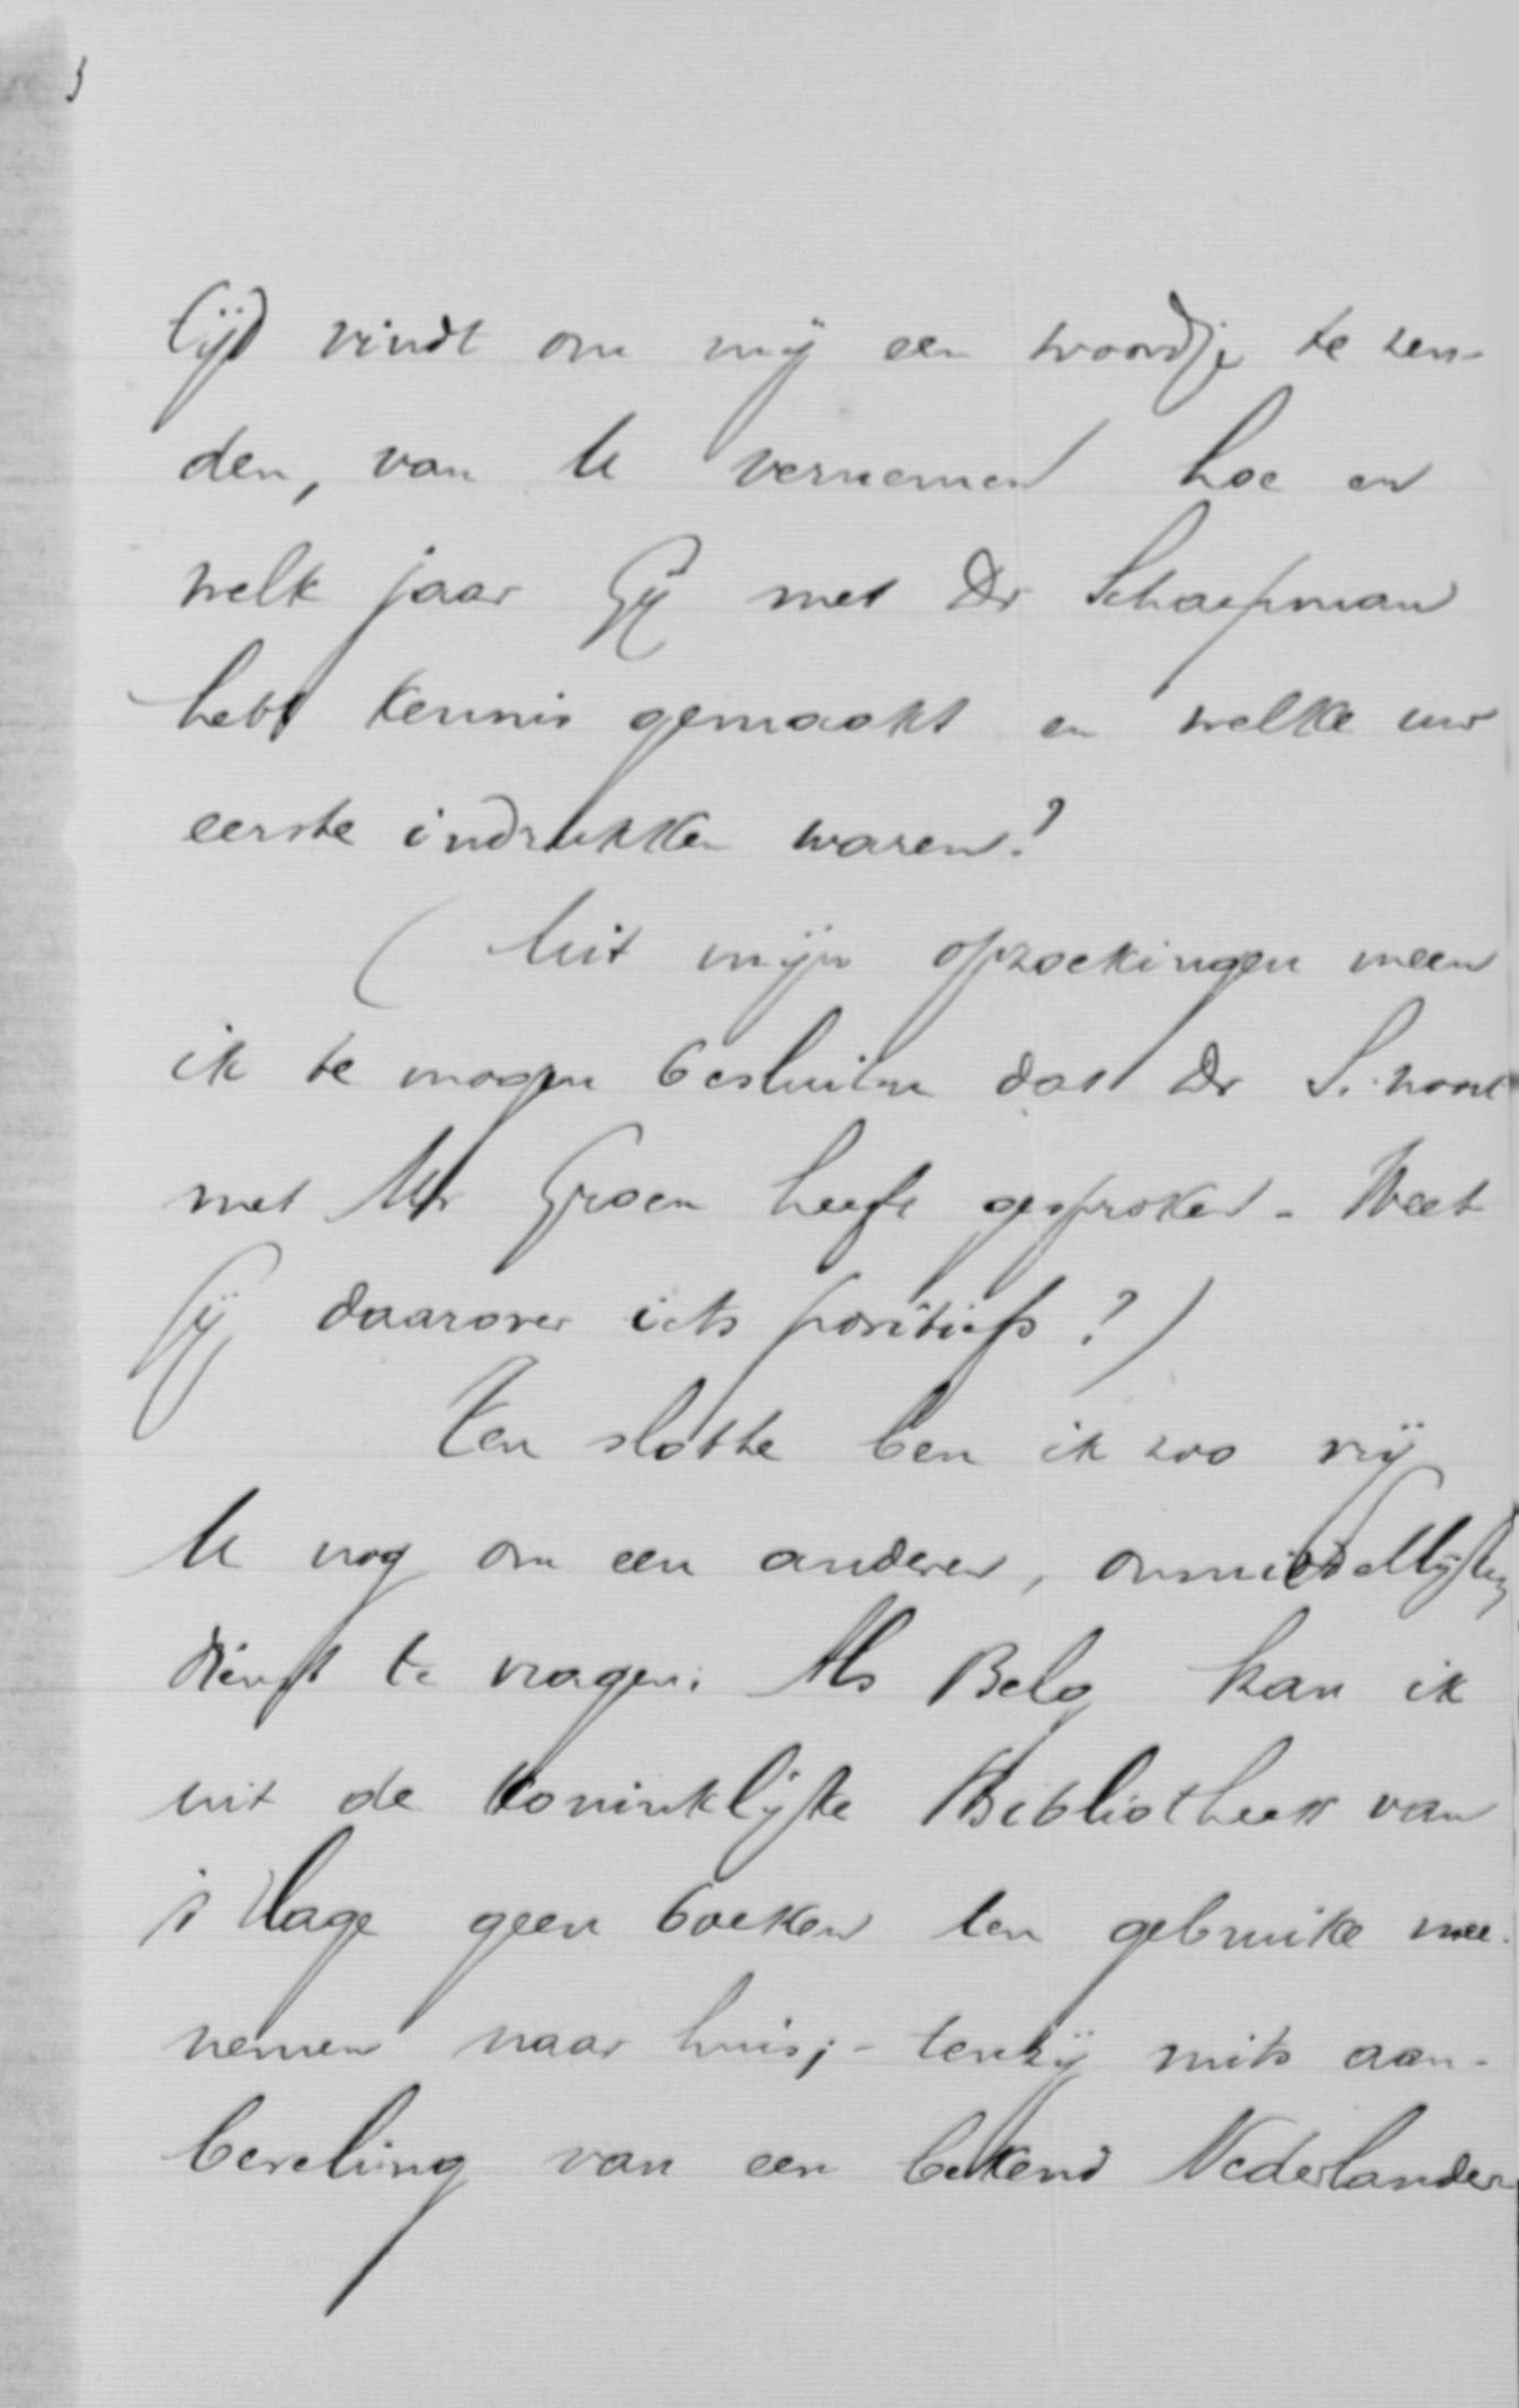 tijd vindt om mij een woordje te zen-
den, van U vernemen hoe en
welk jaar Gij met Dr Schaepman
hebt kennis gemaakt en welke uw
eerste indrukken waren?
(Uit mijn opzoekingen meen
ik te mogen besluiten dat Dr S. nooit
met Mr Groen heeft gesproken. Weet
Gij daarover iets positiefs?)
Ten slotte ben ik zoo vrij
U nog om een anderen, onmiddellijken
dienst te vragen. Als Belg kan ik
uit de Koninklijke Bibliotheek van
's Hage geen boeken ten gebruike mee-
nemen naar huis; - tenzij mits aan-
beveling van een bekend Nederlander